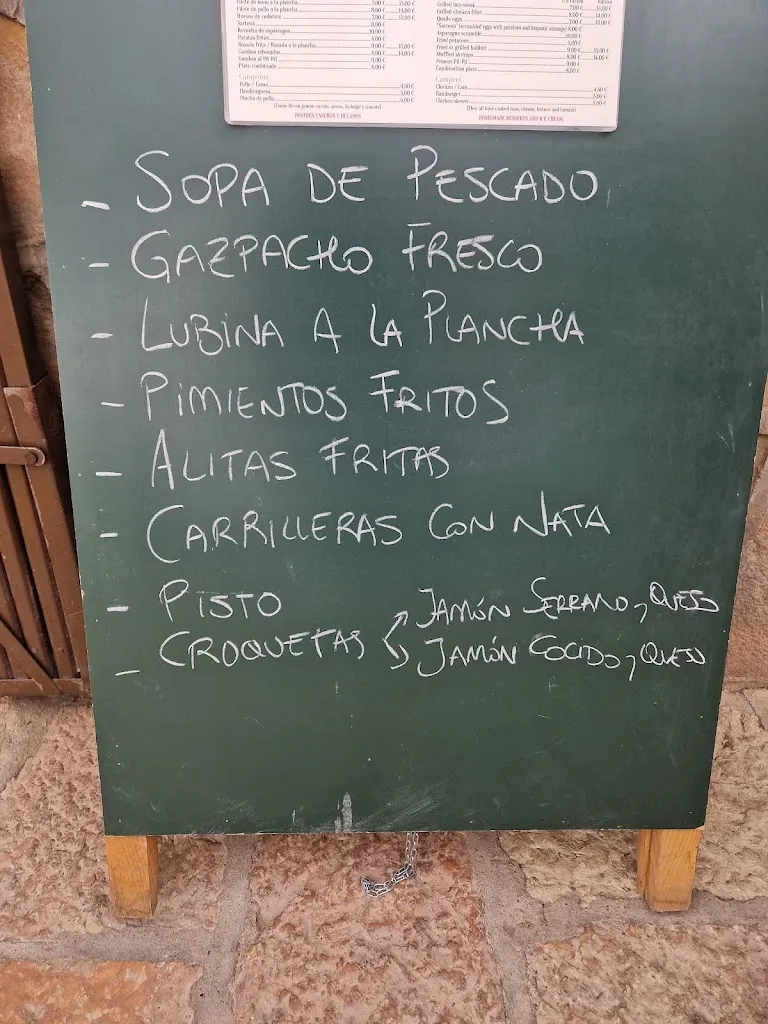 Filete de pollo a la plancha 8,00 € 14,00 €
Huevos de codorniz 7,00 € 13,00 €
Revuelto de espárragos 10,00 €
Patatas fritas 5,00 €
Rosada frita / Rosada a la plancha 9,00 € 15,00 €
Gambas rebozadas 8,00 € 14,00 €
Gambas al Pil-Pil 9,00 €
Plato combinado 8,00 €
Camperos
Pollo / Lomo 4,50 €
Hamburguesa 5,00 €
Pincho de pollo 5,00 €
(Todos llevan jamón cocido, queso, lechuga y tomate)
POSTRES CASEROS Y HELADOS
Grilled chicken fillet 8,00 € 14,00 €
Quails eggs 7,00 € 13,00 €
Asparagus scramble 10,00 €
Fried potatoes 5,00 €
Fried or grilled halibut 9,00 € 15,00 €
Prawns Pil-Pil 9,00 €
Combination plate 8,00 €
Campers
Chicken / Loin 4,50 €
Hamburger 5,00 €
Chicken skewer 5,00 €
(They all have cooked ham, cheese, lettuce and tomato)
HOMEMADE DESSERTS AND ICE CREAM
- SOPA DE PESCADO
- GAZPACHO FRESCO
- LUBINA A LA PLANCHA
- PIMIENTOS FRITOS
- ALITAS FRITAS
- CARRILLERAS CON NATA
- PISTO
- CROQUETAS JAMÓN SERRANO, QUESO
JAMÓN COCIDO, QUESO